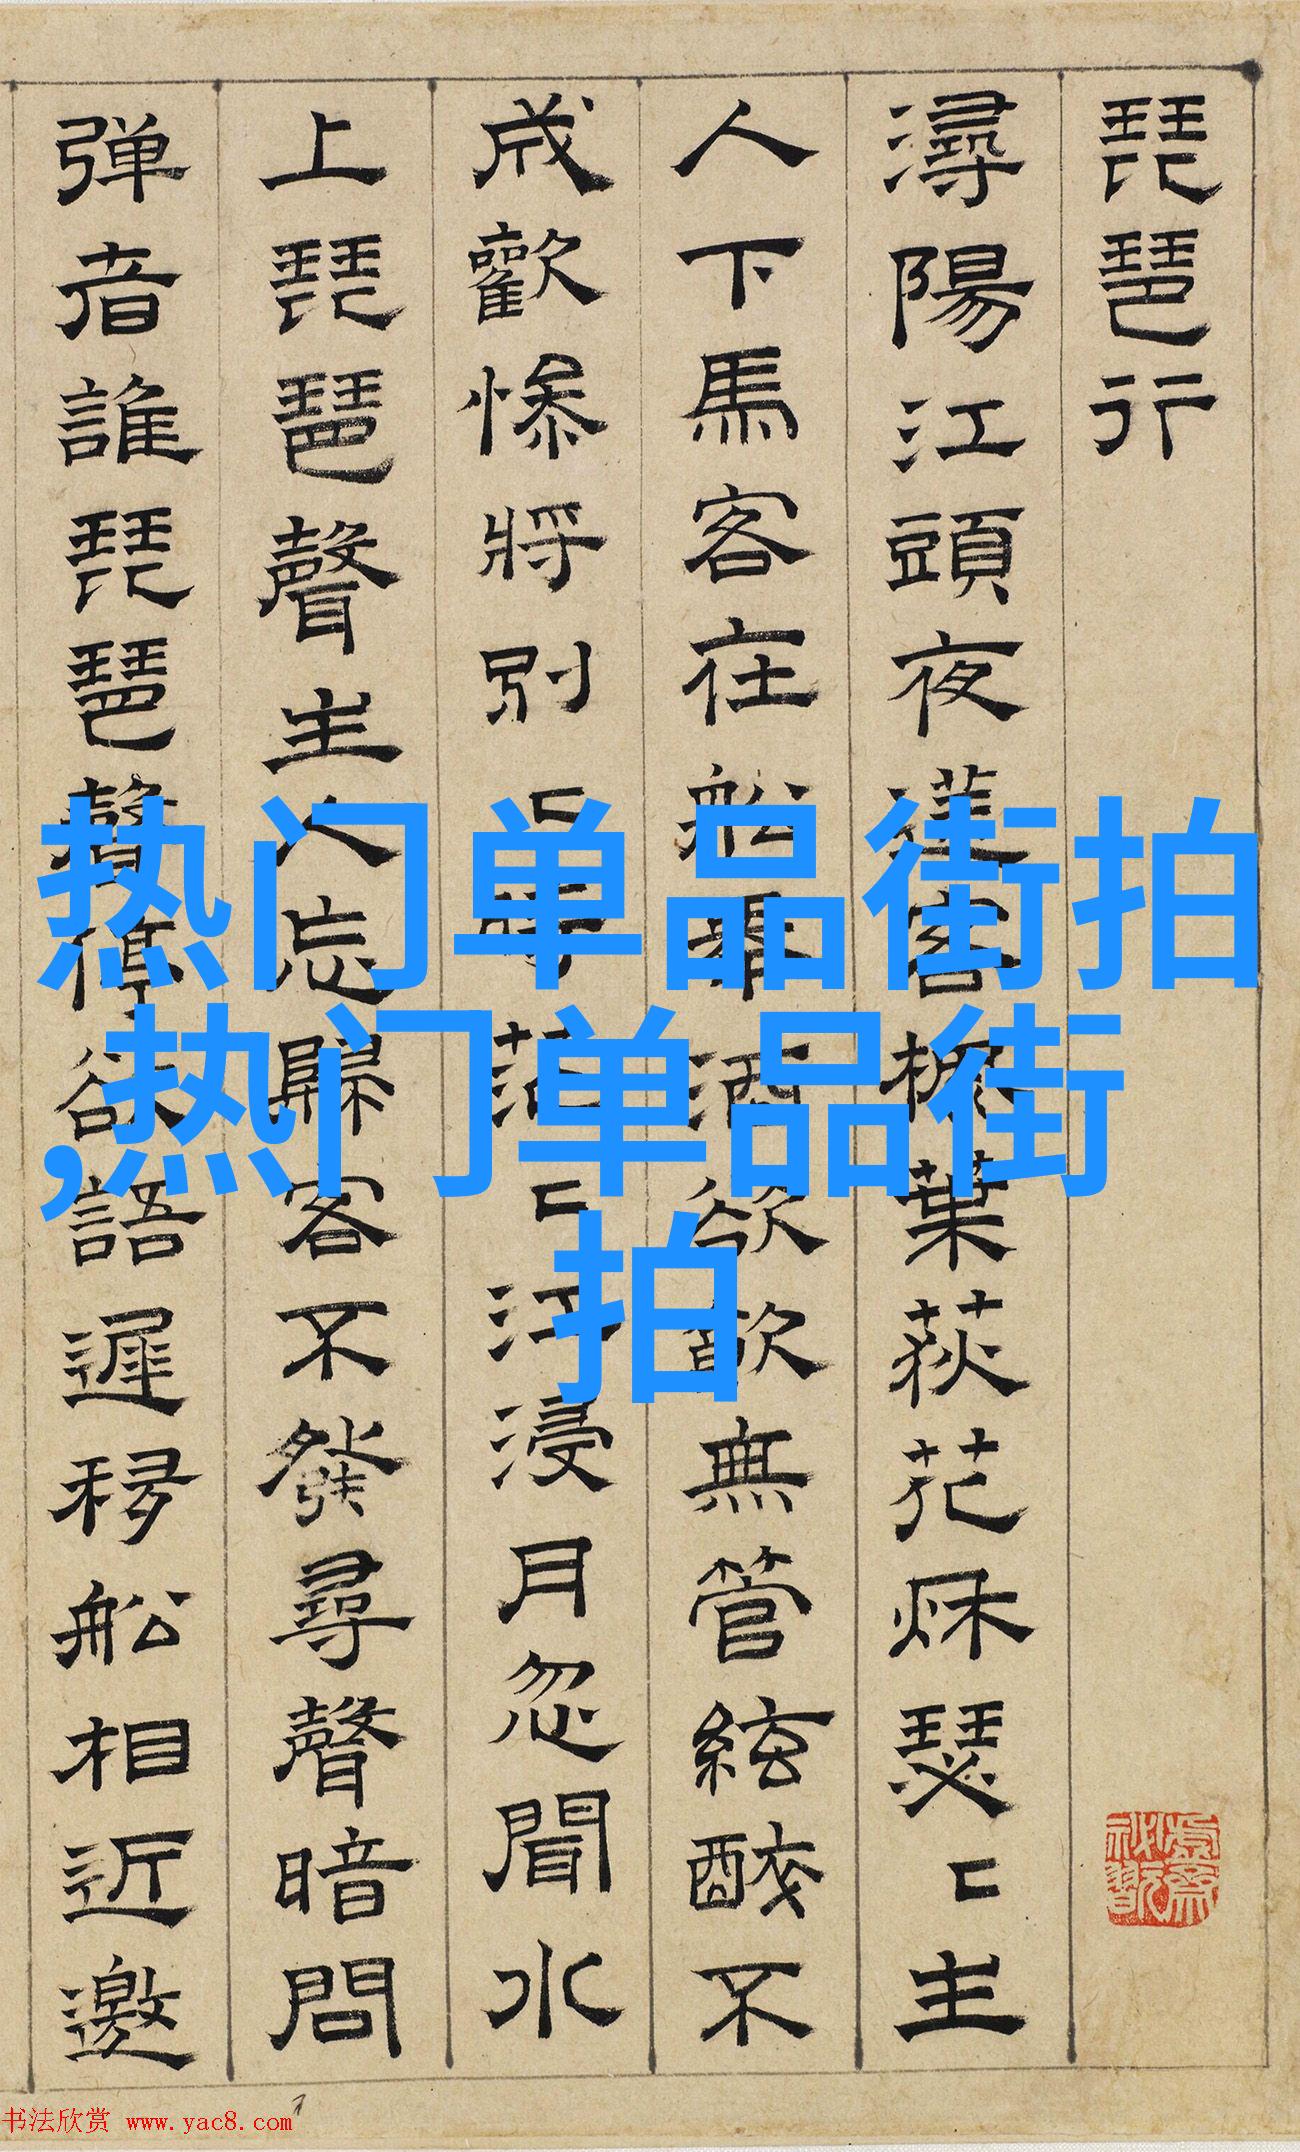 琵琶行
潯陽江頭夜送客楓葉荻花秌瑟〻主
人下馬客在船舉酒欲飲無管絃醉不
成歡慘將別〻時茫〻江浸月忽聞水
上琵琶聲主人忘歸客不發尋聲暗問
弹者誰琵琶聲停欲語遲移船相近邀
热门单品街拍
,热门单品街
拍
书法欣赏 www.yac8.com